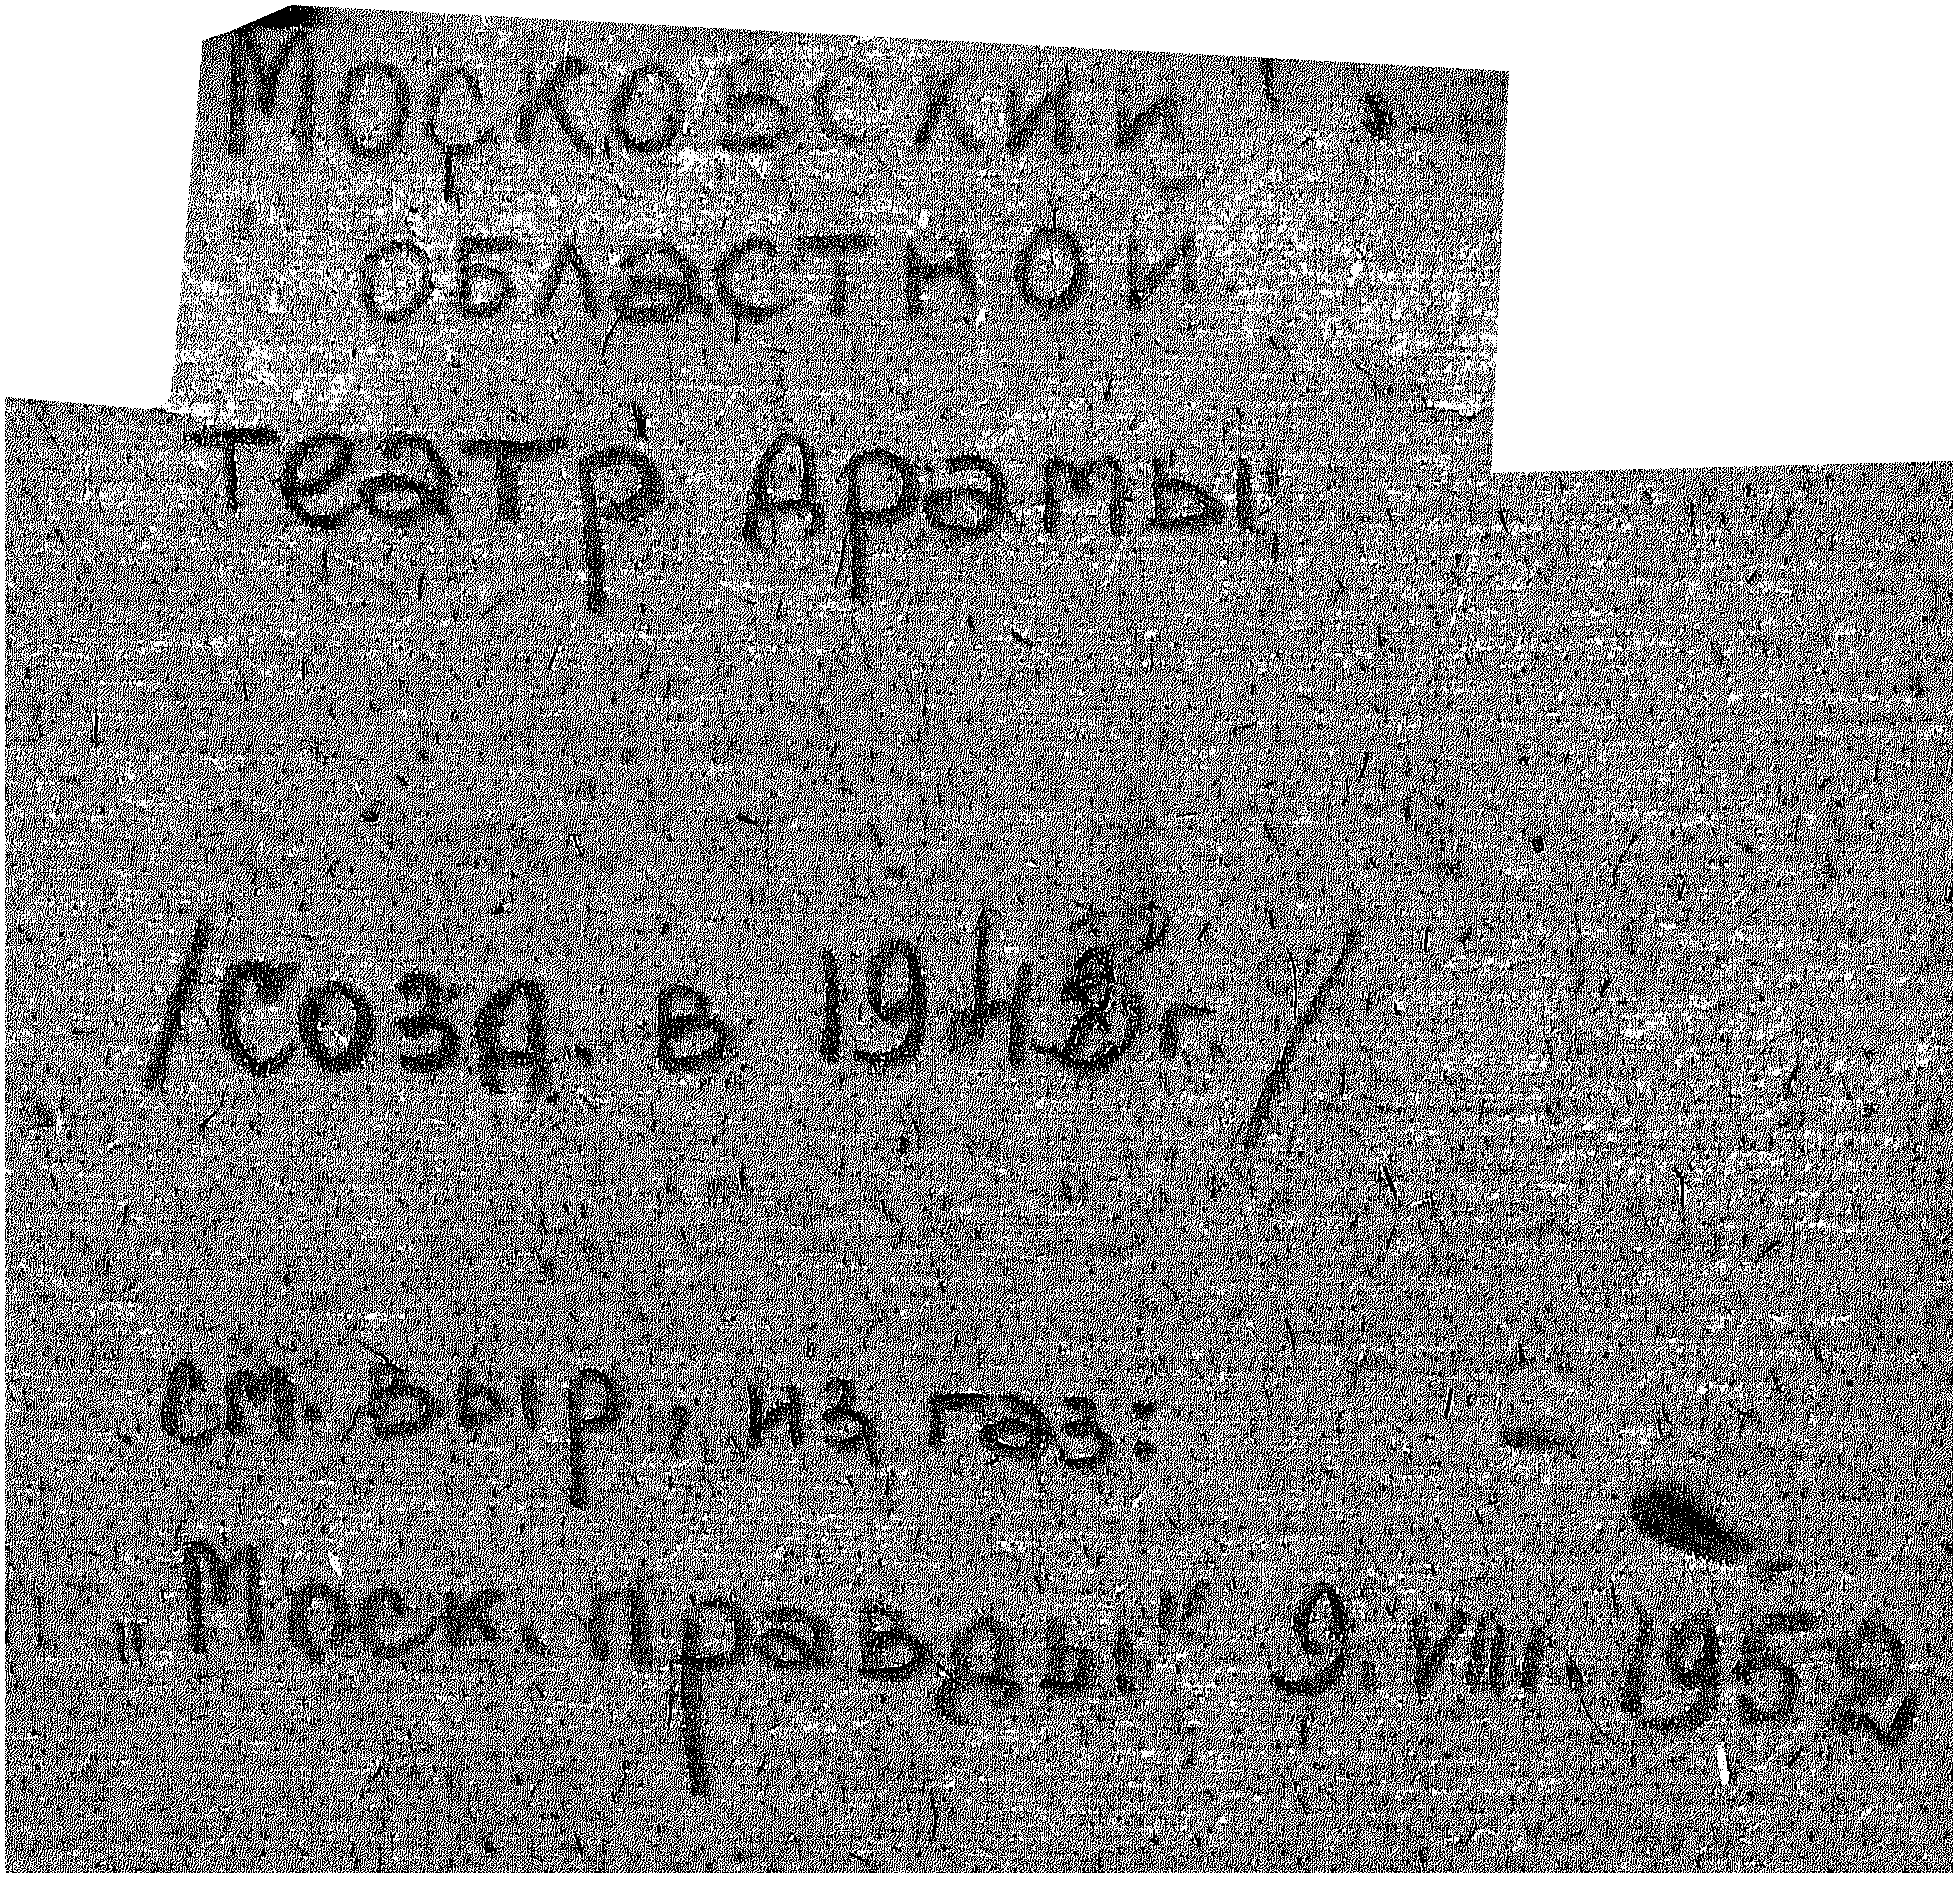 Московский
областной
Театр Драмы
/Созд. в 1943 г./
См. выр. из газ:
"Моск. правды" 9.VIII.1950